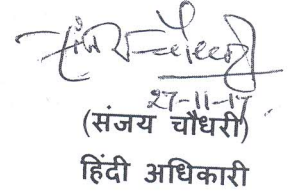 27-11-17
(संजय चौधरी)
हिंदी अधिकारी